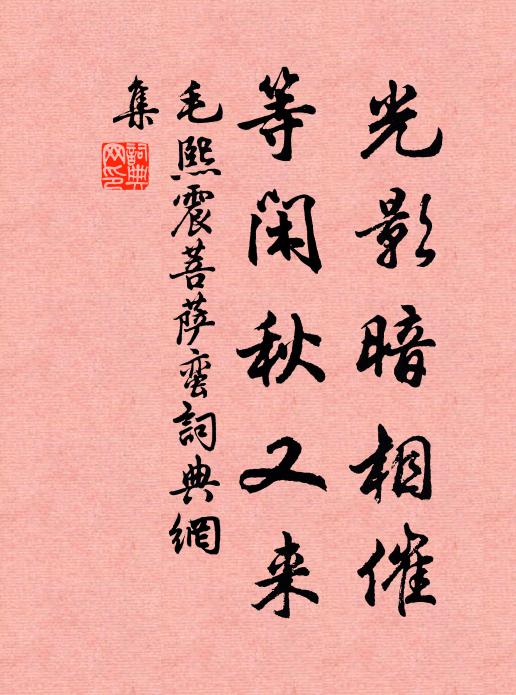 光影暗相催
等闲秋又来
毛熙震菩萨蛮詞典網
集
詞典
网印